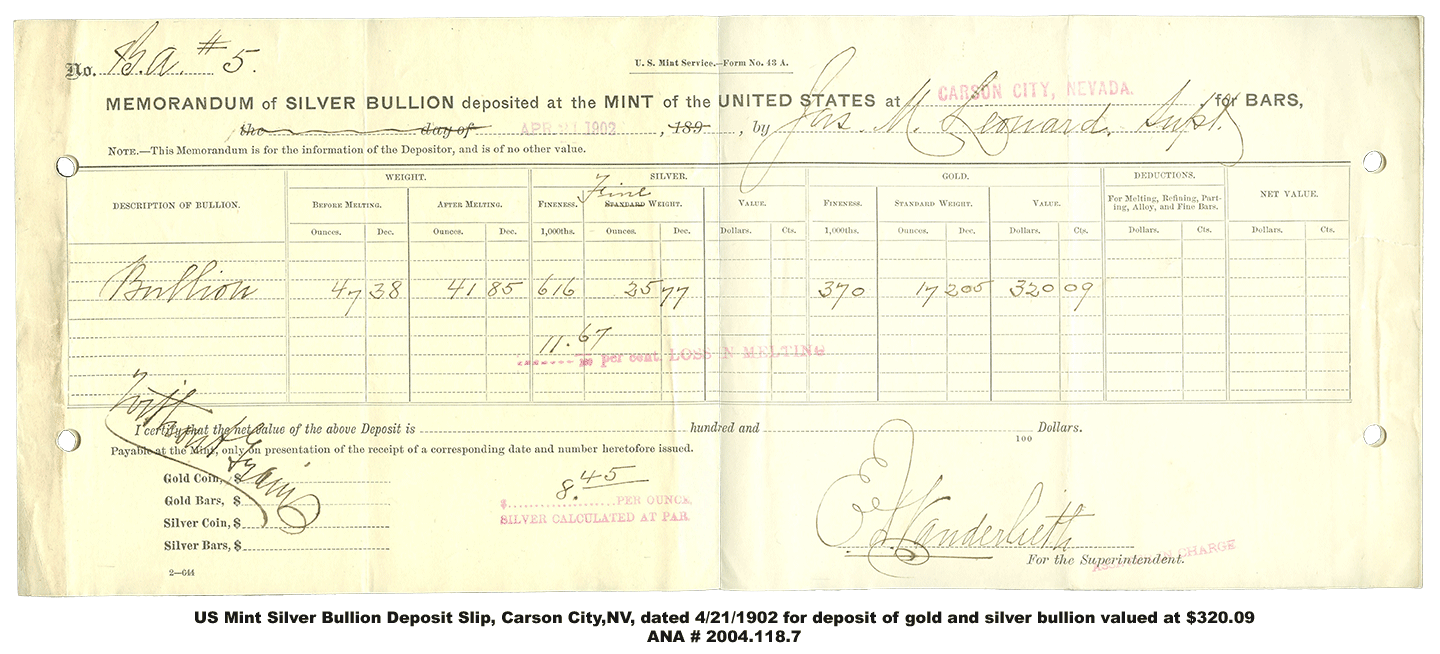 No. B.a. #5.
U. S. Mint Service.—Form No. 43 A.
MEMORANDUM of SILVER BULLION deposited at the MINT of the UNITED STATES at CARSON CITY, NEVADA. , for BARS,
the day of APR 21 1902 , 189 , by Jas. M. Leonard, Supt.
NOTE.—This Memorandum is for the information of the Depositor, and is of no other value.
WEIGHT. SILVER. GOLD. DEDUCTIONS.
Fine
DESCRIPTION OF BULLION. BEFORE MELTING. AFTER MELTING. FINENESS. STANDARD WEIGHT. VALUE. FINENESS. STANDARD WEIGHT. VALUE. For Melting, Refining, Part- NET VALUE.
ing, Alloy, and Fine Bars.
Ounces. Dec. Ounces. Dec. 1,000ths. Ounces. Dec. Dollars. Cts. 1,000ths. Ounces. Dec. Dollars. Cts. Dollars. Cts. Dollars. Cts.
Bullion 47 38 41 85 616 25 77 370 17 205 320 09
11.67
per cent. LOSS IN MELTING
I certify that the net value of the above Deposit is hundred and 100 Dollars.
Payable at the Mint, only on presentation of the receipt of a corresponding date and number heretofore issued.
Gold Coin, $
Gold Bars, $
Silver Coin, $
Silver Bars, $
8.45
$ PER OUNCE,
SILVER CALCULATED AT PAR.
Vanderlieth
ASSAYER IN CHARGE
For the Superintendent.
2—644
US Mint Silver Bullion Deposit Slip, Carson City,NV, dated 4/21/1902 for deposit of gold and silver bullion valued at $320.09
ANA # 2004.118.7